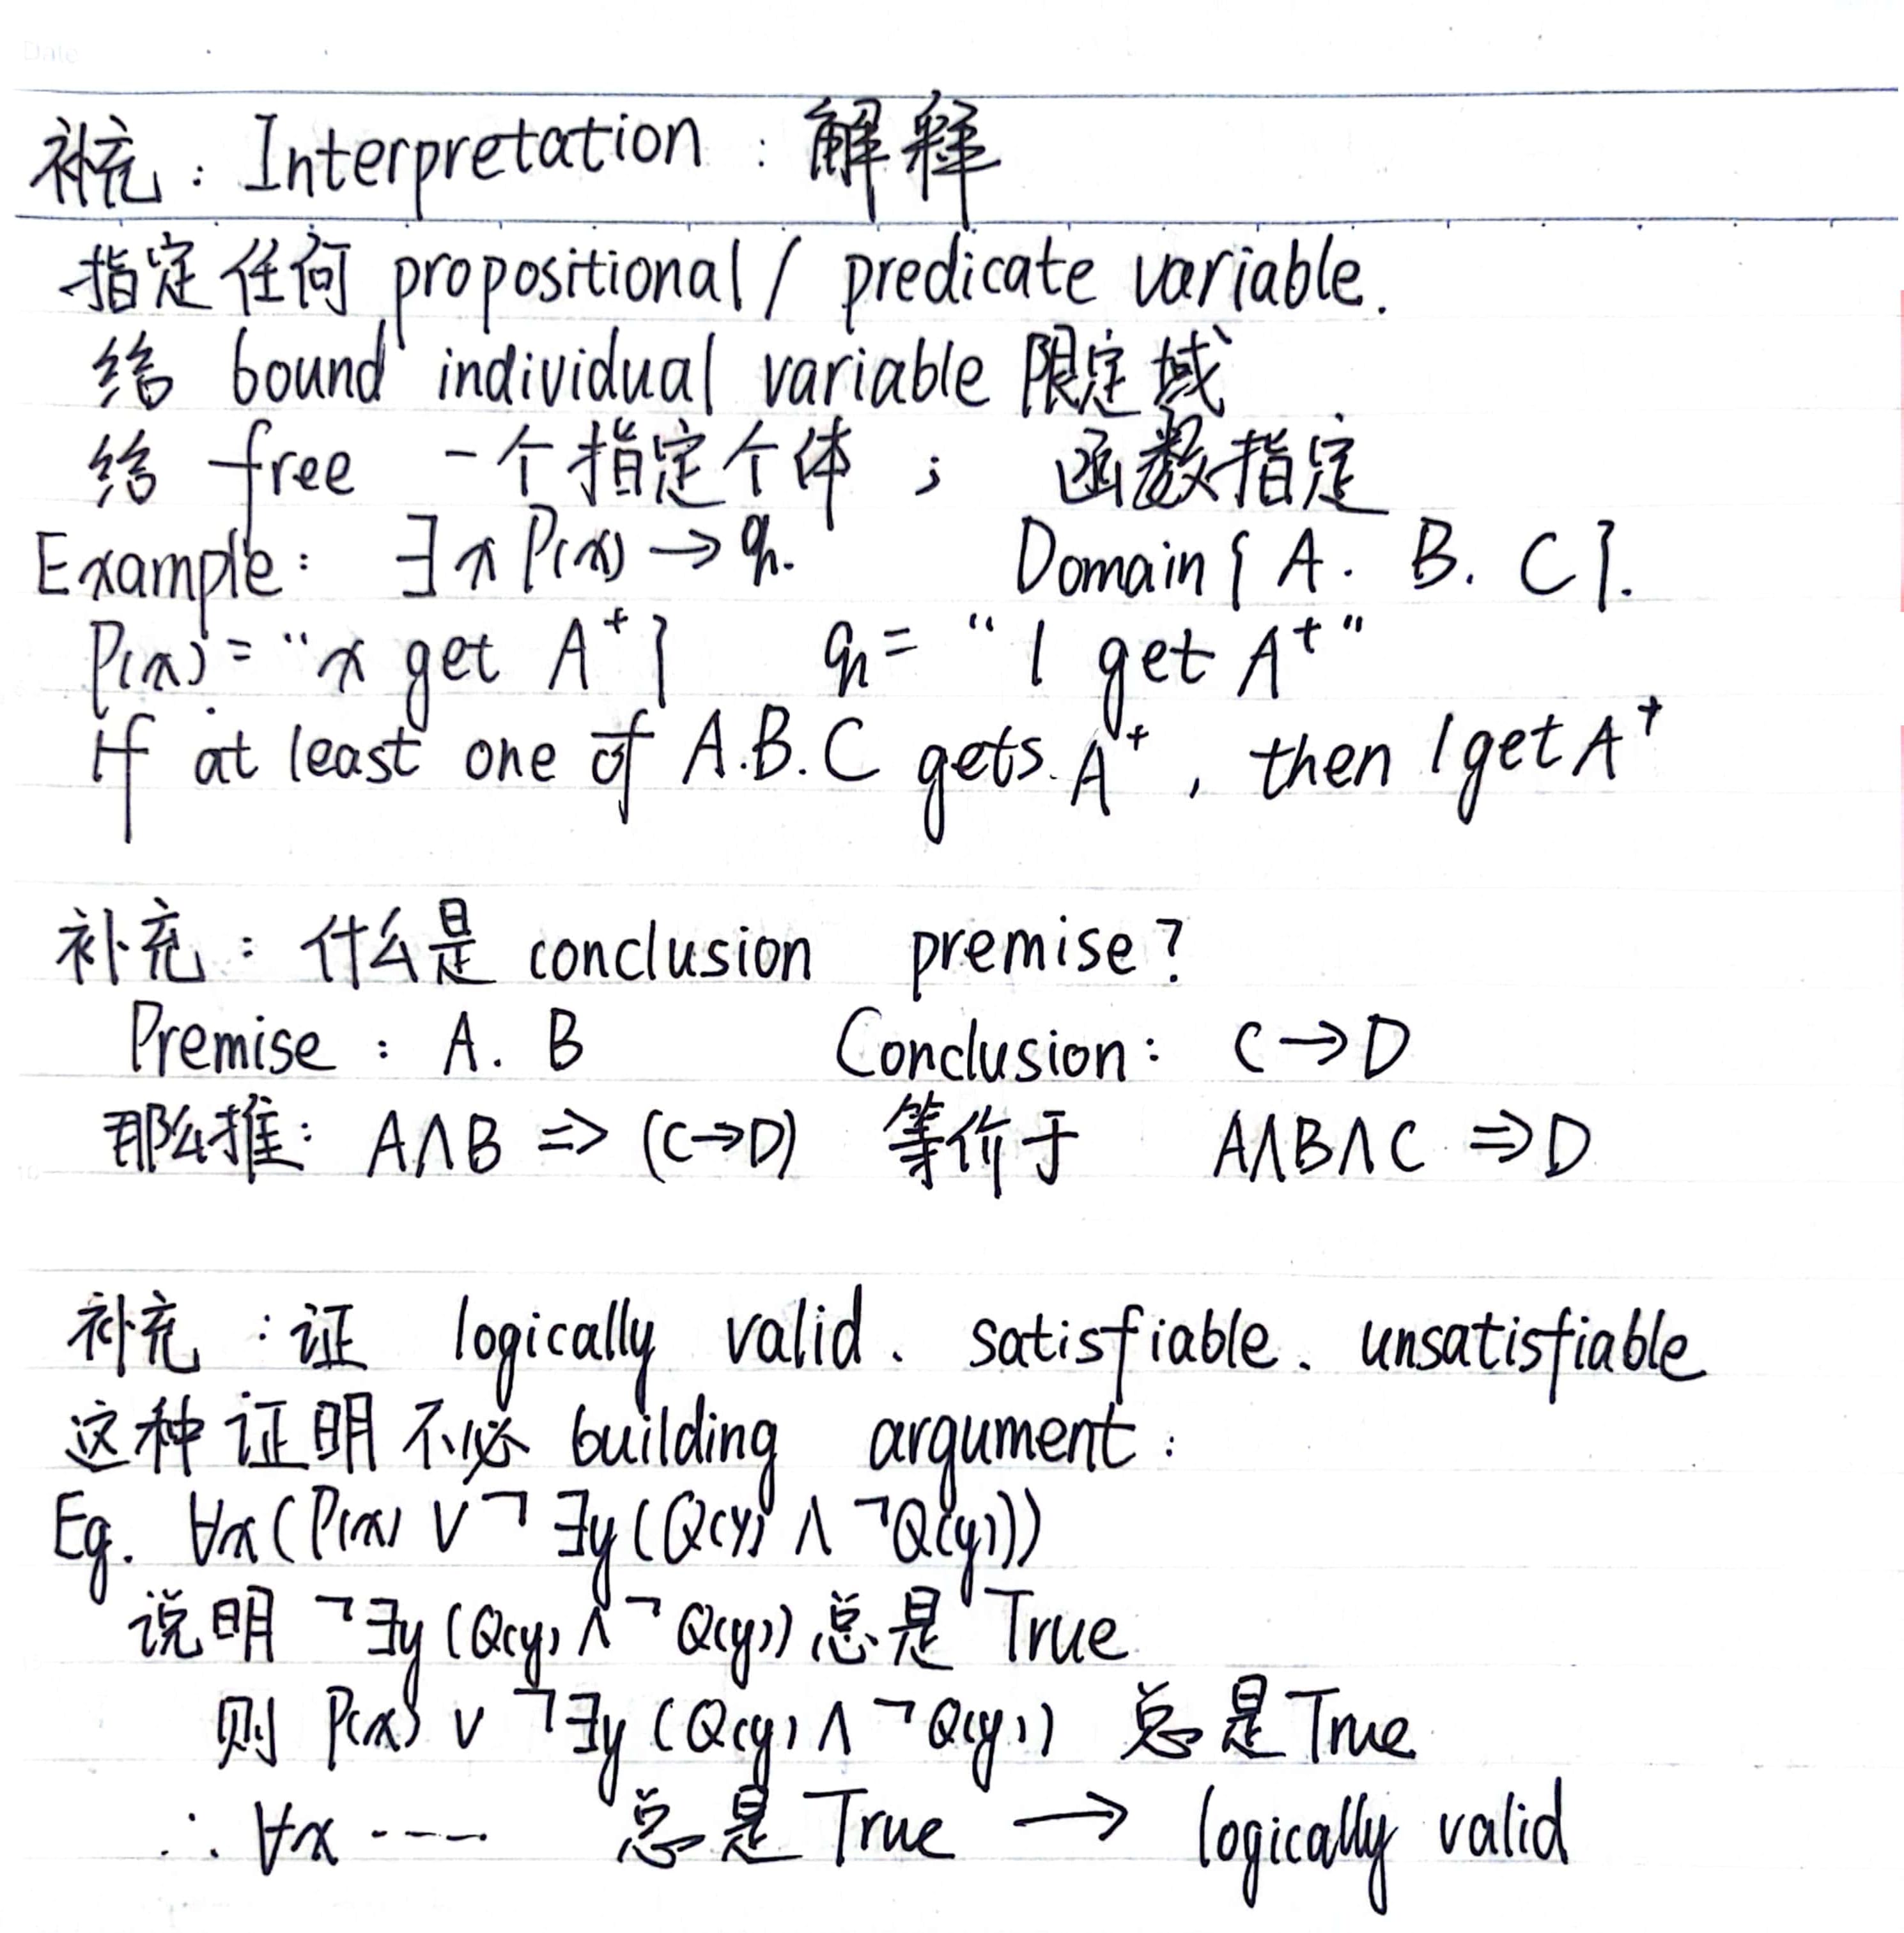 Date
补充：Interpretation：解释
指定任何 propositional / predicate variable.
给 bound individual variable 限定域
给 free 一个指定个体； 函数指定
Example: ∃x P(x) → q. Domain { A. B. C }.
P(x) = “x get A⁺} q = “I get A⁺”
If at least one of A.B.C gets A⁺, then I get A⁺
补充：什么是 conclusion premise?
Premise : A. B Conclusion: C→D
那么推: A∧B => (C→D) 等价于 A∧B∧C => D
补充：证 logically valid、satisfiable、unsatisfiable
这种证明不必 building argument:
Eg. ∀x(P(x) ∨ ¬∃y(Q(y) ∧ ¬Q(y)))
说明 ¬∃y(Q(y) ∧ ¬Q(y)) 总是 True
则 P(x) ∨ ¬∃y(Q(y) ∧ ¬Q(y)) 总是 True
∴ ∀x ---- 总是 True → logically valid